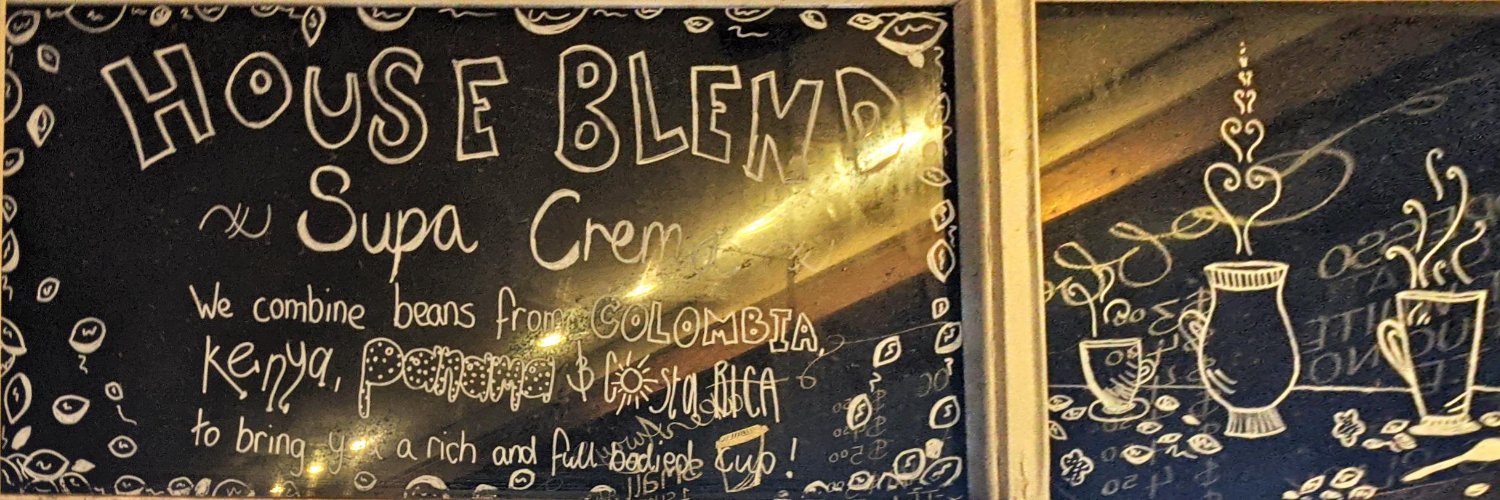 HOUSE BLEND
Supa Crem
We combine beans from COLOMBIA,
Kenya, panama & Costa RICA
to bring you a rich and full bodied cup!